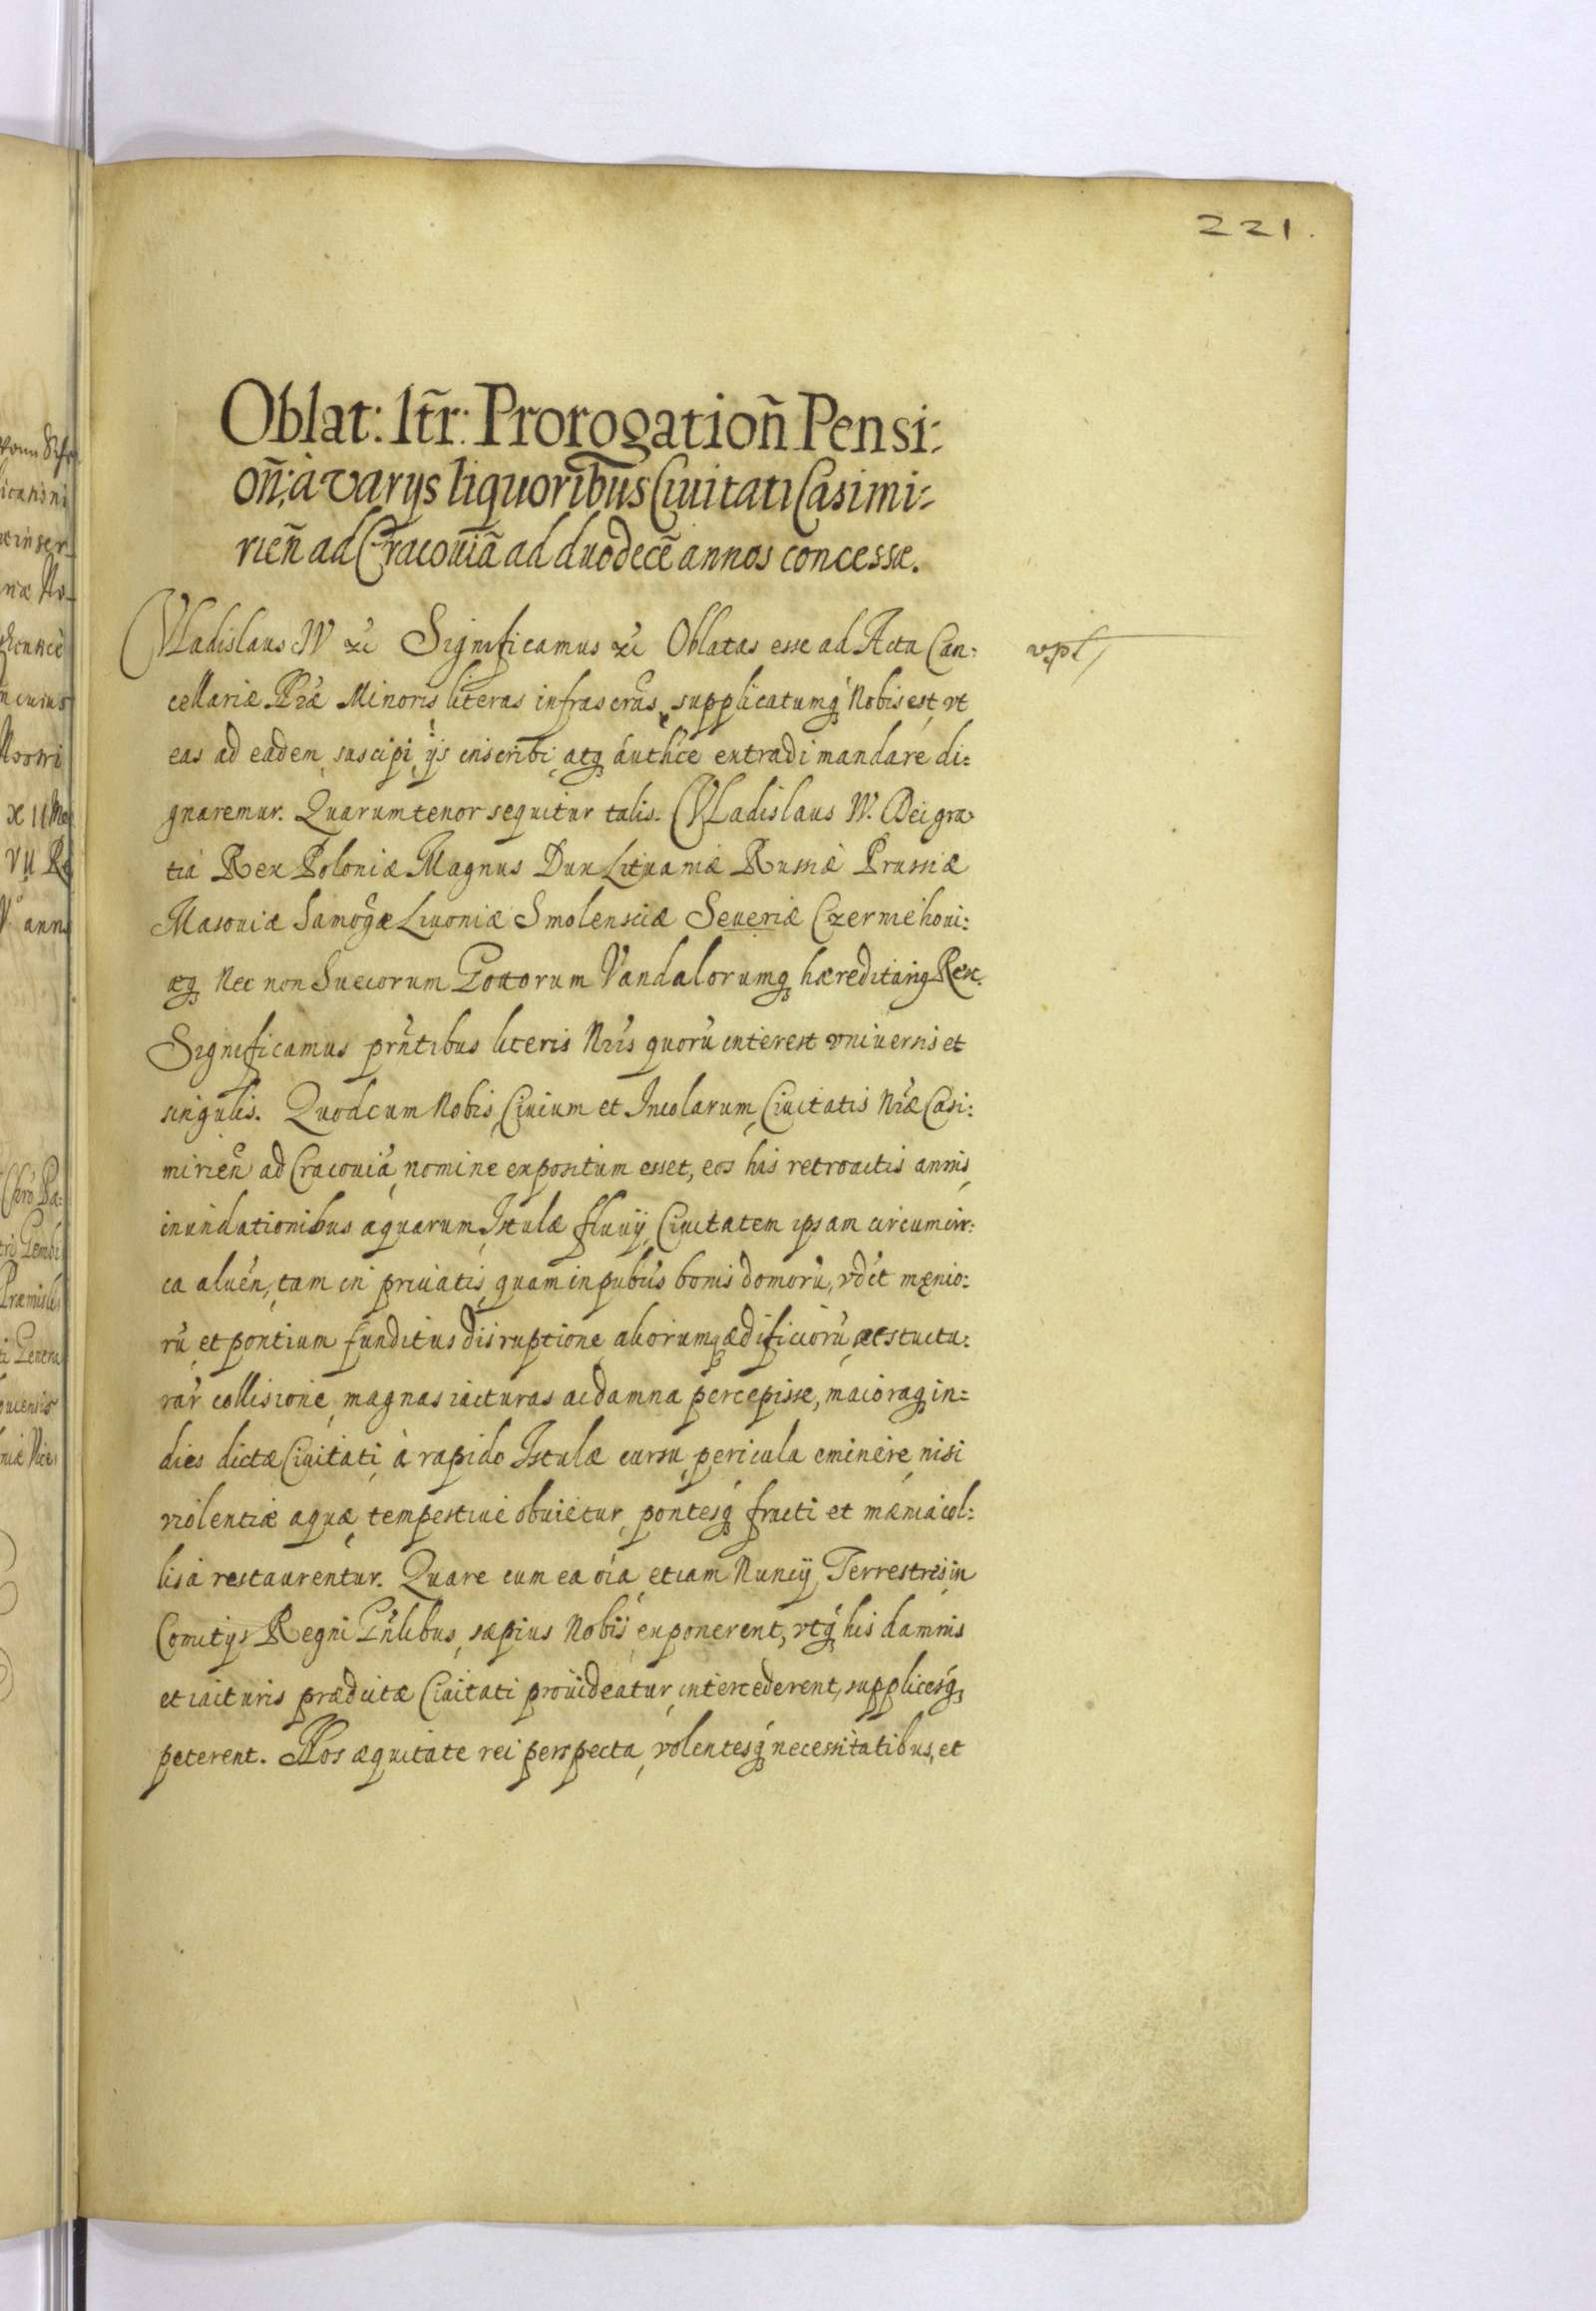 221.
Oblat: ltr̃: Prorogatioñ Pensi:
oñ: à varijs liquoribus Ciuitati Casimi:
rieñ ad Cracouiã ad duodecẽ annos concessæ.
Vladislaus IV Significamus Oblatas esse ad Acta Can:
cellariæ Nræ Minoris literas infrascras, supplicatumq́ Nobis est vt
eas ad eadem suscipi, ijs inscribi, atq́ authce extradi mandare di:
gnaremur. Quarum tenor sequitur talis. Vladislaus IV. Dei gra:
tia Rex Poloniæ Magnus Dux Lituaniæ Russiæ Prussiæ
Masouiæ Samogæ Liuoniæ Smolensciæ Seueriæ Czerniehoui:
æq́ nec non Suecorum Gottorum Vandalorumq́ hæreditariq́ Rex.
Significamus prñtibus literis Nris quorũ interest vniuersis et
singulis. Quod cum Nobis, Ciuium et Incolarum, Ciuitatis Nræ Casi:
mirieñ ad Cracouiã, nomine expositum esset, eos his retroactis annis,
inundationibus aquarum, Istulæ fluuij, Ciuitatem ipsam circumcir:
ca alueñ, tam in priuatis, quam in publis bonis domorũ, vdct mænio:
rũ, et pontium funditus disruptione aliorumq́ ædificiorũ, et stuctu:
rar̃ collisione, magnas iacturas ac damna percepisse, maioraq́ in:
dies dictæ Ciuitati, à rapido Istulæ cursu, pericula eminere, nisi
violentiæ aquæ, tempestiue obuietur, pontesq́ fracti et mænia col:
lisa restaurentur. Quare cum ea oĩa, etiam Nuncij, Terrestres, in
Comitijs Regni Gñlibus, sæpius Nobis exponerent, vtq́ his damnis
et iacturis prædictæ Ciuitati prouideatur, intercederent, supplicesq́,
peterent. Nos æquitate rei perspecta, volentesq́ necessitatibus, et